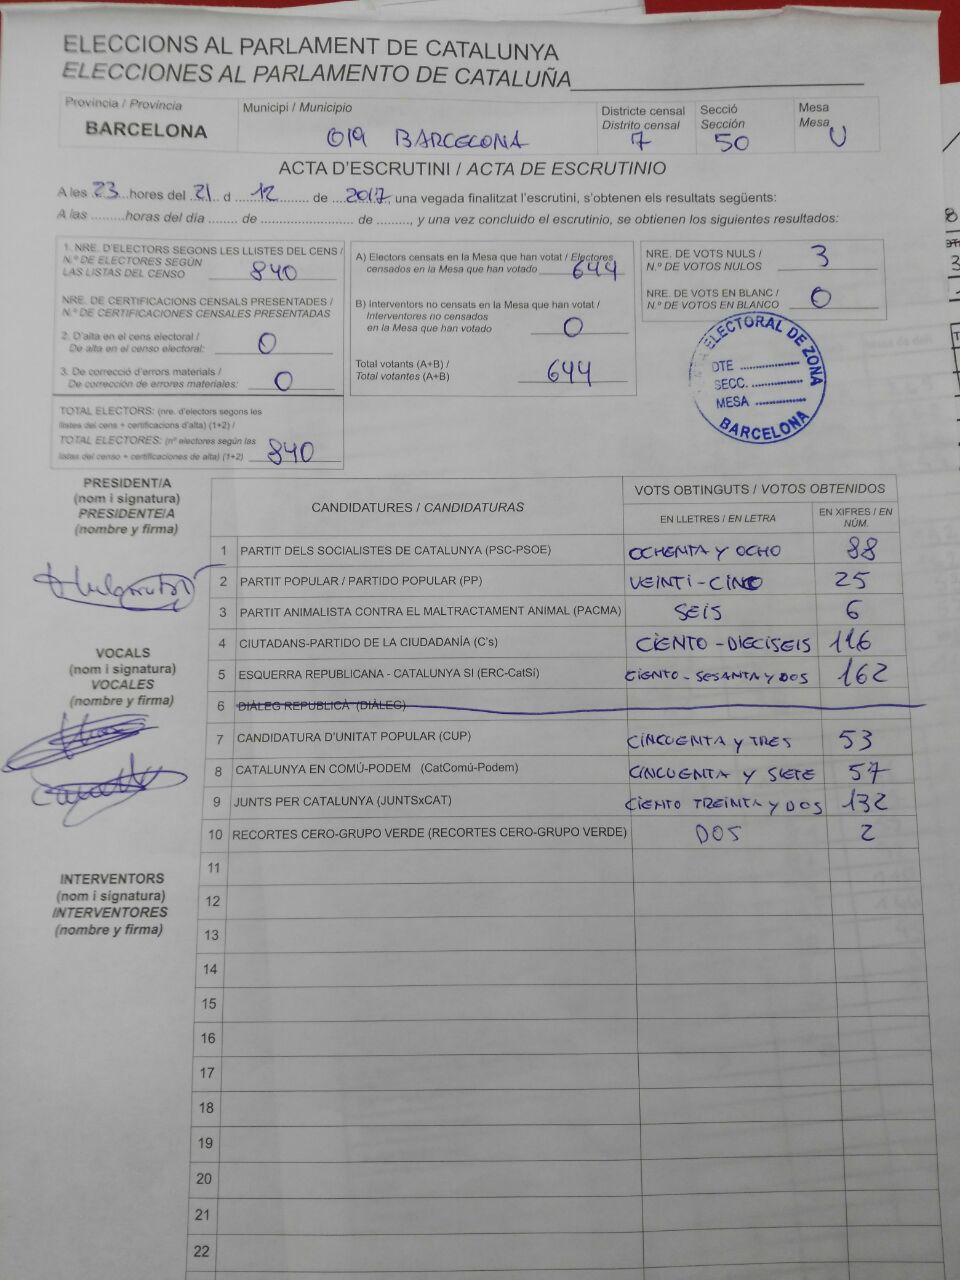 ELECCIONS AL PARLAMENT DE CATALUNYA
ELECCIONES AL PARLAMENTO DE CATALUÑA
Província / Provincia
BARCELONA
Municipi / Municipio
019 BARCELONA
Districte censal
Distrito censal
7
Secció
Sección
50
Mesa
Mesa
U
ACTA D'ESCRUTINI / ACTA DE ESCRUTINIO
A les 23 hores del 21 d 12 de 2017, una vegada finalitzat l'escrutini, s'obtenen els resultats següents:
A las ......... horas del día ....... de ........................ de ........., y una vez concluido el escrutinio, se obtienen los siguientes resultados:
1. NRE. D'ELECTORS SEGONS LES LLISTES DEL CENS /
N.º DE ELECTORES SEGÚN
LAS LISTAS DEL CENSO 840
NRE. DE CERTIFICACIONS CENSALS PRESENTADES /
N.º DE CERTIFICACIONES CENSALES PRESENTADAS
2. D'alta en el cens electoral /
De alta en el censo electoral: 0
3. De correcció d'errors materials /
De corrección de errores materiales: 0
TOTAL ELECTORS: (nre. d'electors segons les
llistes del cens + certificacions d'alta) (1+2) /
TOTAL ELECTORES: (nº electores según las
listas del censo + certificaciones de alta) (1+2) 840
A) Electors censats en la Mesa que han votat / Electores
censados en la Mesa que han votado 644
B) Interventors no censats en la Mesa que han votat /
Interventores no censados
en la Mesa que han votado 0
Total votants (A+B) /
Total votantes (A+B) 644
NRE. DE VOTS NULS /
N.º DE VOTOS NULOS 3
NRE. DE VOTS EN BLANC /
N.º DE VOTOS EN BLANCO 0
ELECTORAL DE ZONA
DTE
SECC.
MESA
BARCELONA
PRESIDENT/A
(nom i signatura)
PRESIDENTE/A
(nombre y firma)
VOCALS
(nom i signatura)
VOCALES
(nombre y firma)
INTERVENTORS
(nom i signatura)
INTERVENTORES
(nombre y firma)
CANDIDATURES / CANDIDATURAS
VOTS OBTINGUTS / VOTOS OBTENIDOS
EN LLETRES / EN LETRA
EN XIFRES / EN NÚM.
1 PARTIT DELS SOCIALISTES DE CATALUNYA (PSC-PSOE) OCHENTA Y OCHO 88
2 PARTIT POPULAR / PARTIDO POPULAR (PP) VEINTI-CINCO 25
3 PARTIT ANIMALISTA CONTRA EL MALTRACTAMENT ANIMAL (PACMA) SEIS 6
4 CIUTADANS-PARTIDO DE LA CIUDADANÍA (C's) CIENTO-DIECISEIS 116
5 ESQUERRA REPUBLICANA - CATALUNYA SI (ERC-CatSí) CIENTO-SESANTA Y DOS 162
6 DIÀLEG REPUBLICÀ (DIÀLEG)
7 CANDIDATURA D'UNITAT POPULAR (CUP) CINCUENTA Y TRES 53
8 CATALUNYA EN COMÚ-PODEM (CatComú-Podem) CINCUENTA Y SIETE 57
9 JUNTS PER CATALUNYA (JUNTSxCAT) CIENTO TREINTA Y DOS 132
10 RECORTES CERO-GRUPO VERDE (RECORTES CERO-GRUPO VERDE) DOS 2
11
12
13
14
15
16
17
18
19
20
21
22